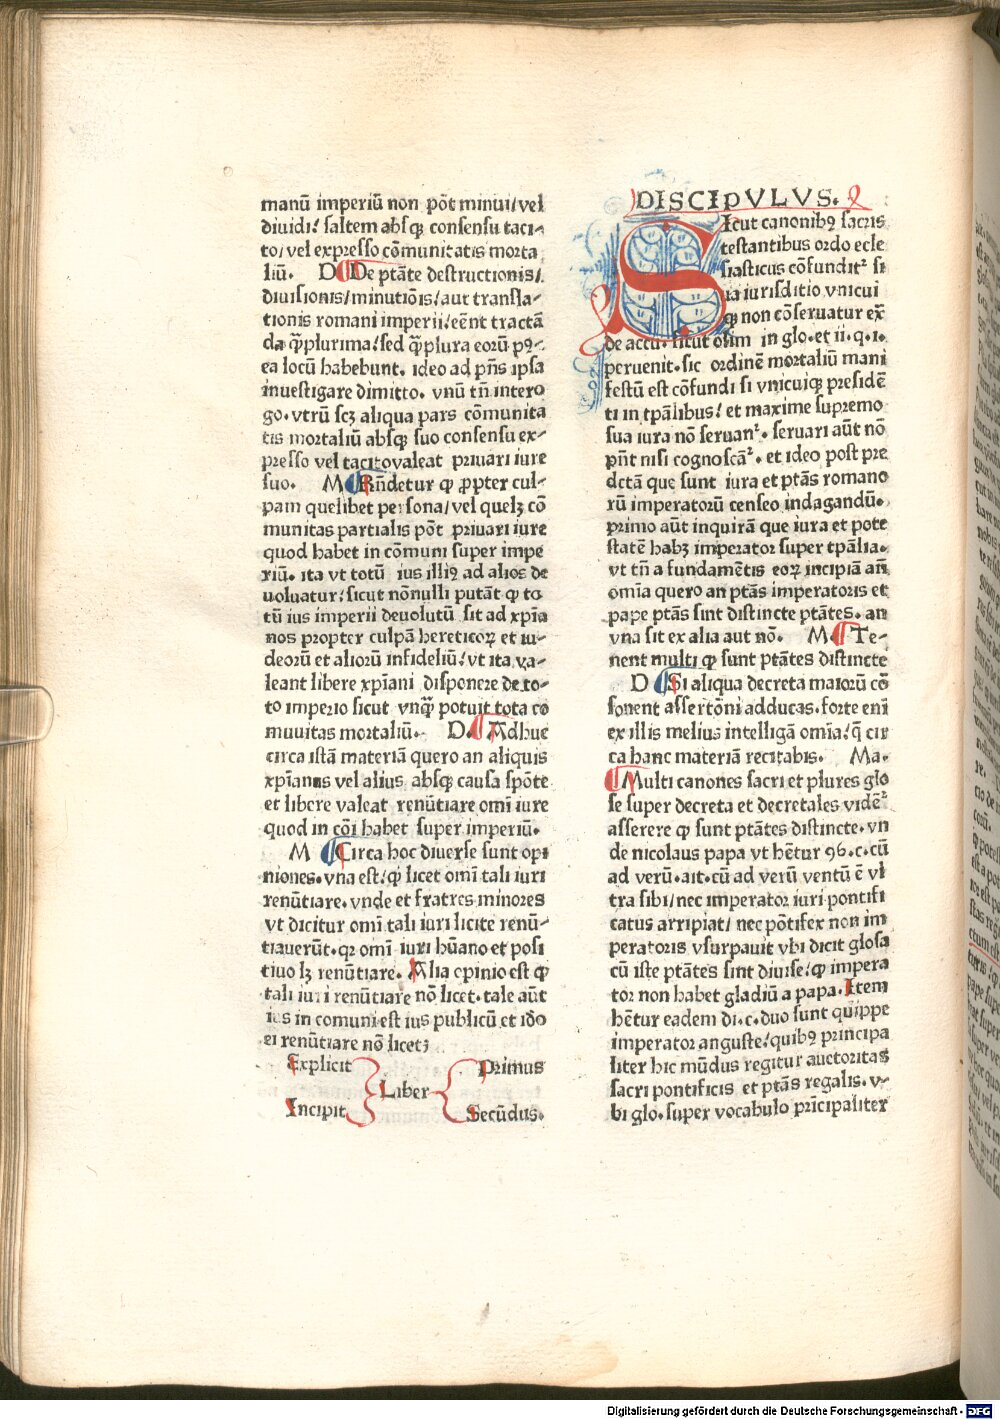 manū imperiū non pōt minui/vel
diuidi! saltem absqꝫ consensu taci-
to/vel expresso cōmunitatis morta
liū. D De ptāte destructionis/
diuisionis/minutiōis/aut transla-
tionis romani imperii/eēnt tractā
da q̄plurima!sed q̄plura eorū pꝯ-
ea locū habebunt. ideo ad p̄ns ipsa
inuestigare dimitto. vnū tn̄ intero
go. vtrū scꝫ aliqua pars cōmunita
tis mortaliū absqꝫ suo consensu ex-
presso vel tacitovaleat priuari iure
suo. M Rn̄detur ꝙ ꝓpter cul-
pam quelibet persona/vel quelꝫ cō
munitas partialis pōt priuari iure
quod habet in cōmuni super impe
riū. ita vt totū ius illiꝯ ad alios de
uoluatur!sicut nōnulli putāt ꝙ to
tū ius imperii deuolutū sit ad xp̄ia
nos propter culpā hereticoꝝ et iu-
deorū et aliorū infideliū!vt ita va-
leant libere xp̄iani disponere de to-
to imperio sicut vnq̄ potuit tota co
muuitas mortaliū. D. Adhuc
circa istā materiā quero an aliquis
xp̄ianus vel alius absqꝫ causa spōte
et libere valeat renūtiare omī iure
quod in cōi habet super imperiū.
M Circa hoc diuerse sunt opi
niones. vna est!ꝙ licet omī tali iuri
renūtiare. vnde et fratres minores
vt dicitur omī tali iuri licite renū-
tiauerūt. qꝫ omī iuri hūano et posi
tiuo lꝫ renūtiare. Alia opinio est ꝙ
tali iuri renūtiare nō licet. tale aūt
ius in comuni est ius publicū et iðo
ei renūtiare nō licetꝫ
Explicit Primus
Liber
Incipit Secūdus.
DISCIPVLVS.
SIcut canonibꝯ sacris
testantibus ordo ecle
siasticus cōfundit᷑ si
ua iurisditio vnicui
qꝫ non cōseruatur ex̄
de accu. sicut olim in glo. et ii. q. i.
peruenit. sic ordinē mortaliū mani
festū est cōfundi si vnicuiqꝫ presidē
ti in tp̄alibus! et maxime supremo
sua iura nō seruan᷑. seruari aūt nō
p̄nt nisi cognoscā᷑. et ideo post pre
dctā que sunt iura et ptās romano
rū imperatorū censeo indagandū.
primo aūt inquirā que iura et pote
statē habꝫ imperator super tp̄alia.
vt tn̄ a fundamētis eoꝝ incipiā an̄
omīa quero an ptās imperatoris et
pape ptās sint distincte ptātes. an
vna sit ex alia aut nō. M. Te-
nent multi ꝙ sunt ptātes distincte
D Si aliqua decreta maiorū cō
sonent assertōni adducas. forte enī
ex illis melius intelligā omīa!q̄ cir
ca hanc materiā recitabis. Ma.
Multi canones sacri et plures glo
se super decreta et decretales vidē᷑
asserere ꝙ sunt ptātes distincte. vn
de nicolaus papa vt hētur 96. c. cū
ad verū. ait. cū ad verū ventū ē vl
tra sibi/nec imperator iuri pontifi
catus arripiat/ nec pōtifex non im
peratoris vsurpauit vbi dicit glosa
cū iste ptātes sint diuise!ꝙ impera
tor non habet gladiū a papa. Item
hētur eadem di. c. duo sunt quippe
imperator anguste!quibꝯ principa
liter hic mūdus regitur auctoritas
sacri pontificis et ptās regalis. v-
bi glo. super vocabulo prīcipaliter
Digitalisierung gefördert durch die Deutsche Forschungsgemeinschaft - DFG